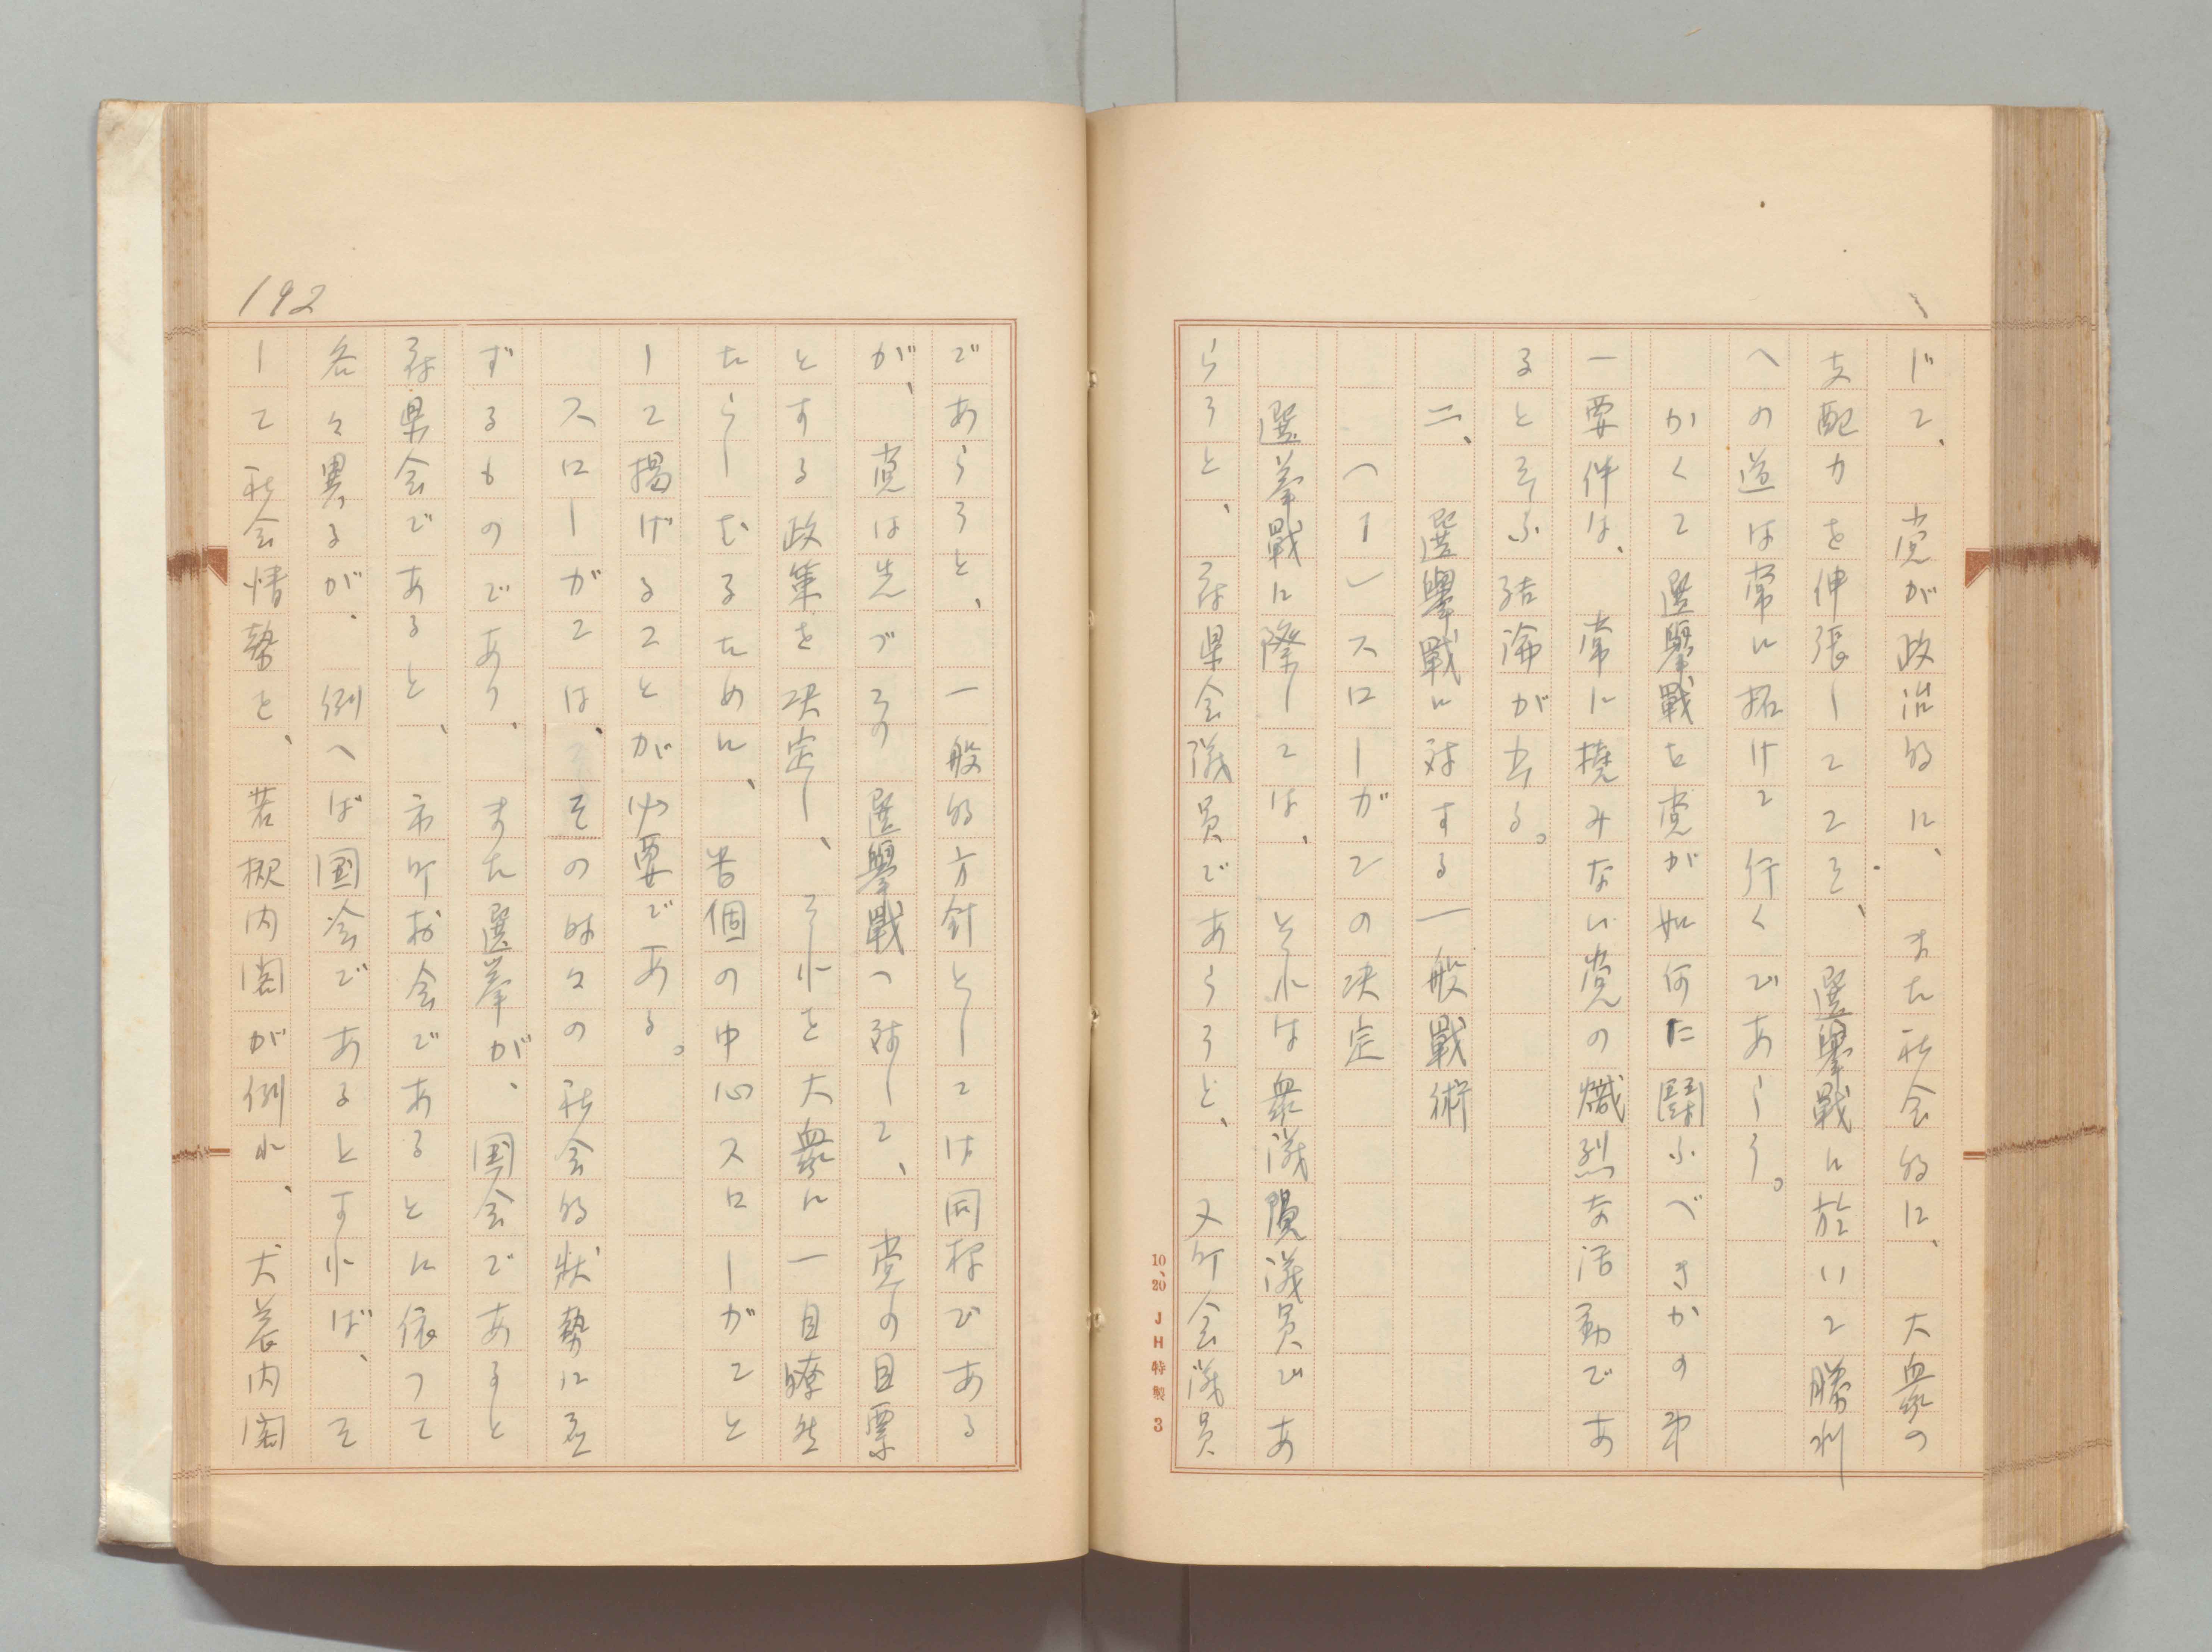 じて、党が政治的に、また社会的に、大衆の
支配力を伸張してこそ、選擧戦に於いて勝利
への道は常に拓けて行くであらう。
かくて選擧戰を党が如何に闘ふべきかの第
一要件は、常に撓みない党の熾烈な活動であ
ると云ふ結論が出る。
二、選擧戰に対する一般戰術
(1)スローガンの決定
選挙戰に際しては、それは衆議院議員であ
らうと、府県会議員であらうと、又町会議員
10、20 JH特製 3
192
であらうと、一般的方針としては同様である
が、党は先づその選擧戰へ対して、党の目標
とする政策を決定し、それを大衆に一目瞭然
たらしむるために、数個の中心スローガンと
して揚げることが必要である。
スローガンは、その時々の社会的狀勢に應
ずるものであり、また選挙が、国会であると
府県会であると、市町村会であるとに依つて
各々異るが、例へば国会であるとすれば、そ
して社会情勢を、若槻内閣が倒れ、犬養内閣